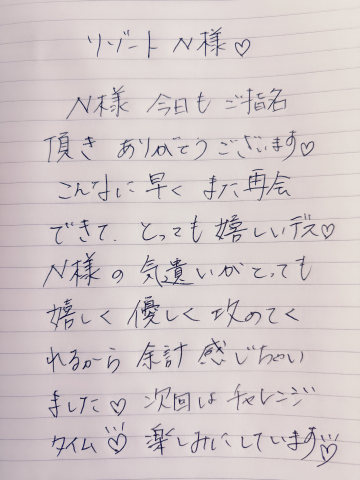 リゾート N様♡
N様 今日も ご指名
頂き ありがとう ございます♡
こんなに 早く また 再会
できて、とっても 嬉しいデス♡
N様の 気遣いが とっても
嬉しく 優しく 攻めてく
れるから 余計 感じちゃい
ました♡ 次回は チャレンジ
タイム♡ 楽しみにしています♡